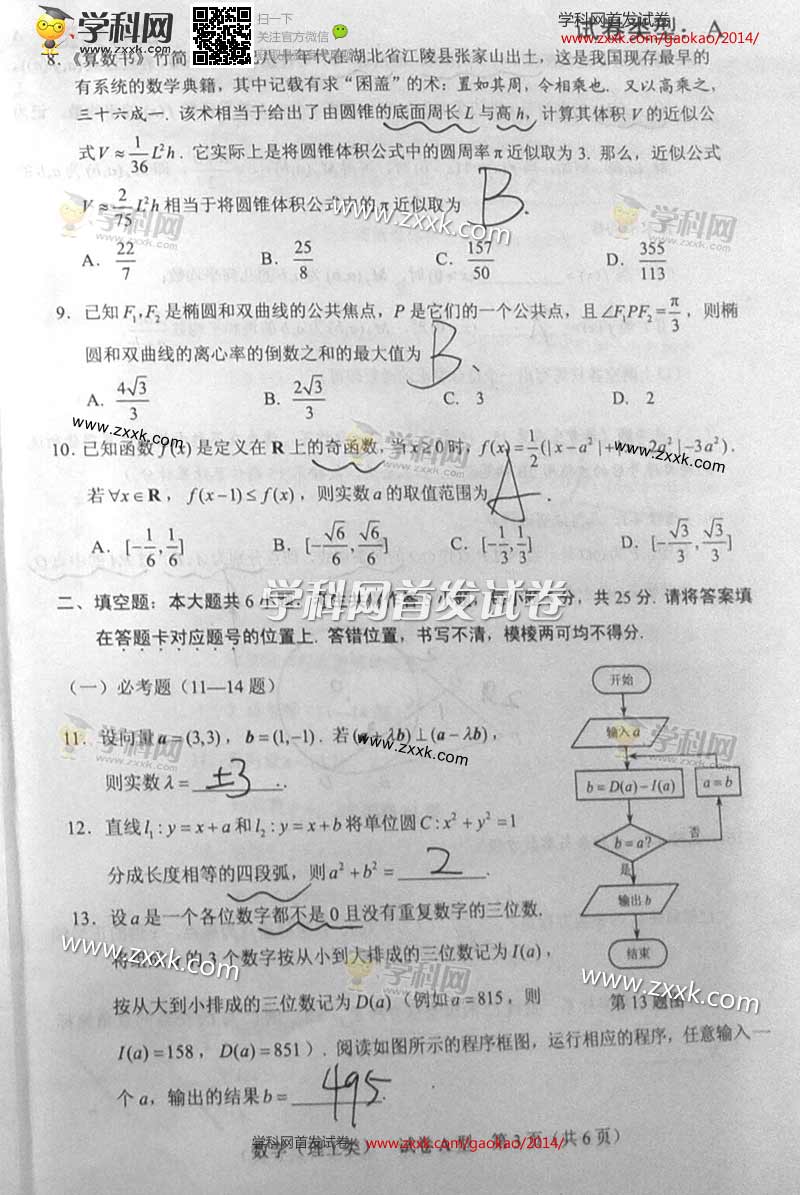 学科网 www.zxxk.com 扫一扫 关注官方微信
学科网首发试卷 www.zxxk.com/gaokao/2014/
试卷类型：A
8.《算数书》竹简 八十年代在湖北省江陵县张家山出土，这是我国现存最早的
有系统的数学典籍，其中记载有求“囷盖”的术：置如其周，令相乘也. 又以高乘之，
三十六成一. 该术相当于给出了由圆锥的底面周长 L 与高 h，计算其体积 V 的近似公
式 V ≈ 1/36 L²h . 它实际上是将圆锥体积公式中的圆周率 π 近似取为 3. 那么，近似公式
V ≈ 2/75 L²h 相当于将圆锥体积公式中的 π 近似取为 B .
学科网 www.zxxk.com www.zxxk.com 学科网 www.zxxk.com
A. 22/7 B. 25/8 C. 157/50 D. 355/113
9. 已知 F₁,F₂ 是椭圆和双曲线的公共焦点，P 是它们的一个公共点，且∠F₁PF₂ = π/3 ，则椭
圆和双曲线的离心率的倒数之和的最大值为 B .
学科网 www.zxxk.com
A. 4√3/3 B. 2√3/3 C. 3 D. 2
www.zxxk.com www.zxxk.com
10. 已知函数 f(x) 是定义在 R 上的奇函数，当 x ≥ 0 时，f(x) = 1/2(|x − a²| + 2a²| − 3a²) .
若∀x∈R ，f(x−1) ≤ f(x) ，则实数 a 的取值范围为 A .
A. [−1/6, 1/6] B. [−√6/6, √6/6] C. [−1/3, 1/3] D. [−√3/3, √3/3]
学科网首发试卷
二、填空题：本大题共 6 小 分，共 25 分. 请将答案填
在答题卡对应题号的位置上. 答错位置，书写不清，模棱两可均不得分.
（一）必考题（11—14 题）
开始
学科网 www.zxxk.com www.zxxk.com 学科网 www.zxxk.com
11. 设向量 a = (3,3) ，b = (1,−1) . 若 (a + λb) ⊥ (a − λb) ，
输入 a
则实数 λ = ±3 .
b = D(a) − I(a) a = b
12. 直线 l₁ : y = x + a 和 l₂ : y = x + b 将单位圆 C : x² + y² = 1
b = a? 否
是
分成长度相等的四段弧，则 a² + b² = 2 .
输出 b
13. 设 a 是一个各位数字都不是 0 且没有重复数字的三位数.
结束
www.zxxk.com 学科网 www.zxxk.com www.zxxk.com
将组成 a 的 3 个数字按从小到大排成的三位数记为 I(a) ，
按从大到小排成的三位数记为 D(a)（例如 a = 815，则
第 13 题图
I(a) = 158 ，D(a) = 851）. 阅读如图所示的程序框图，运行相应的程序，任意输入一
个 a，输出的结果 b = 495 .
学科网首发试卷 www.zxxk.com/gaokao/2014/
数学（理工类） 试卷 A 型 第 3 页（共 6 页）